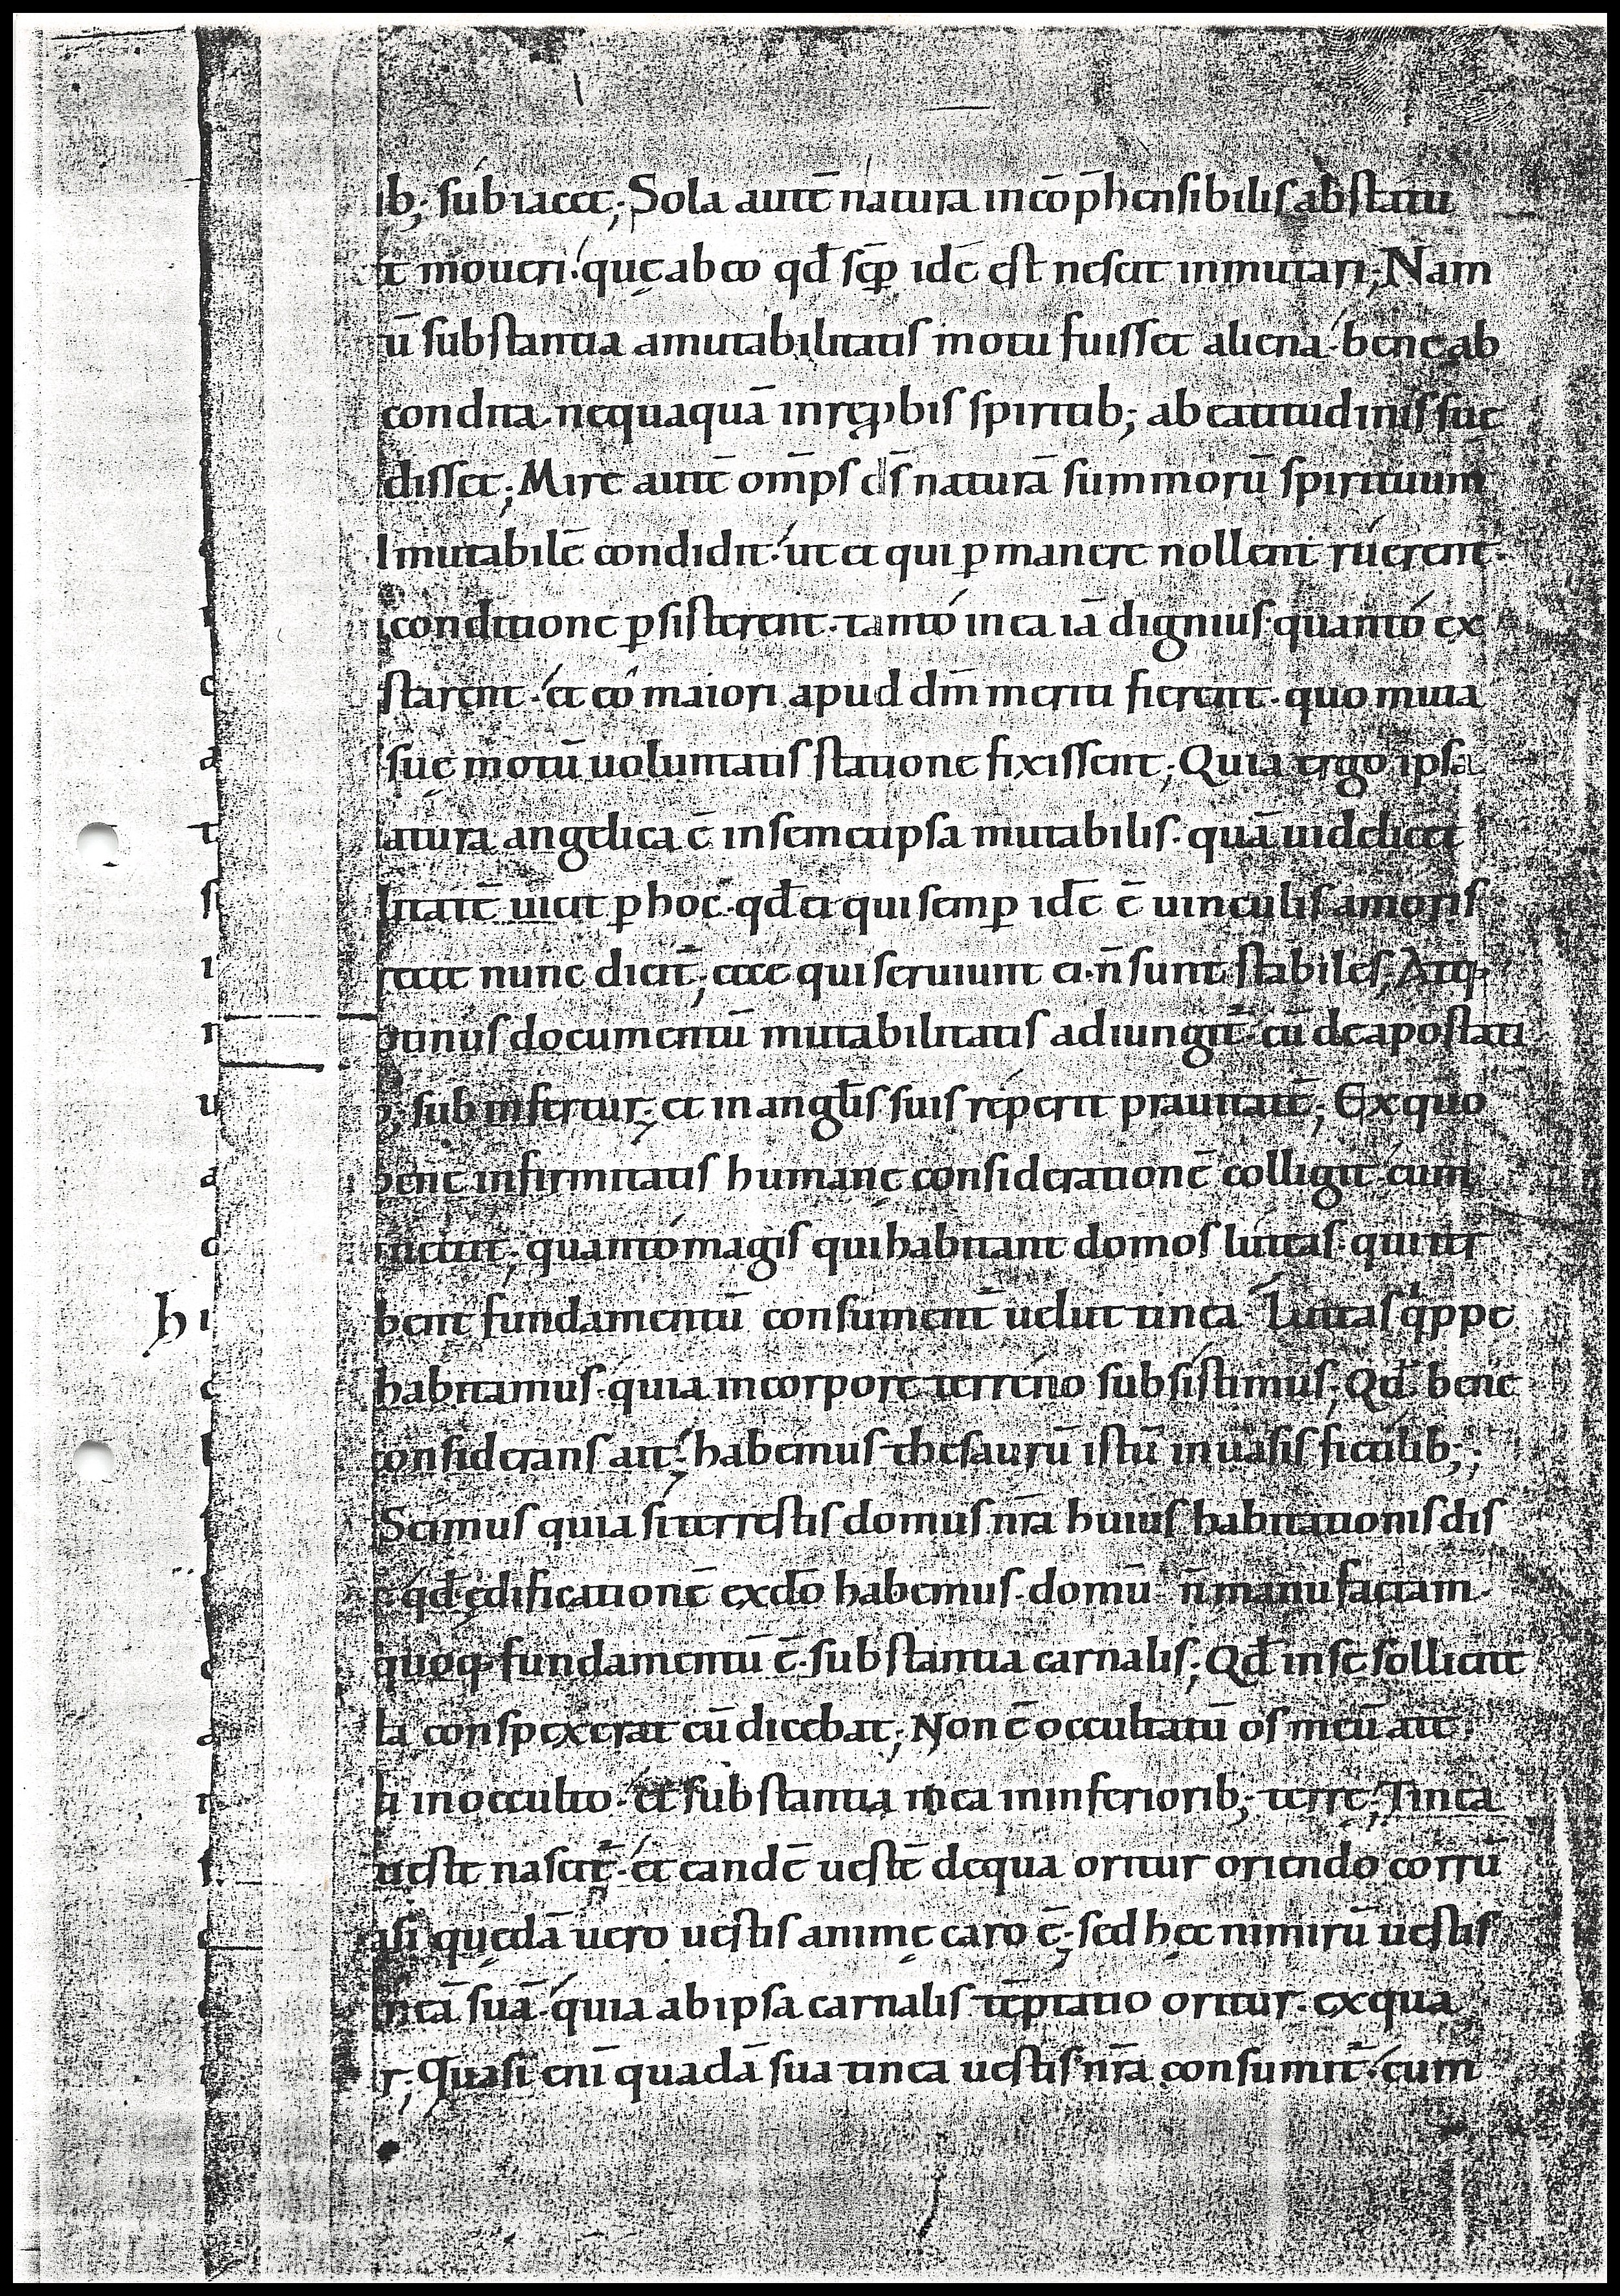 ib; subiacet; Sola autē natura incōp̄hensibilis ab statu
t moueri. quę ab eo qđ sēp idē est nescit inmutari; Nam
ū substantia a mutabilitatis motu fuisset aliena. bene ab
condita. nequaquā in rep̱bis spiritib; a beatitudinis suę
disset; Mire autē om̄ps d̄s naturā summorū spirituum
mutabilē condidit. ut et qui p̱manere nollent ruerent.
conditione p̱sisterent. tanto in ea iā dignius. quanto ex
starent. et eo maiori apud dm̄ meriti fierent. quo muta
suę motū uoluntatis statione fixissent; Quia ergo ipsa
atura angelica ē in semetipsa mutabilis. quā uidelicet
litatē uicit p̱ hoc. qđ ei qui semp̱ idē ē uinculis amoris
recte nunc dicit̄; ecce qui seruiunt ei. n̄ sunt stabiles; Atq;
otinus documentū mutabilitatis adiungit̄. cū de apostati
b; subinfertur; et in angl̄is suis rep̱erit prauitatē; Ex quo
bene infirmitatis humanę considerationē colligit. cum
nectit; quanto magis qui habitant domos luteas. qui tr̄
bent fundamentū consument̄ uelut tinea. Luteas qͥppe
habitamus. quia in corpore terreno subsistimus; Qđ bene
considerans ait; habemus thesaurū istū in uasis fictilib;;
Scimus quia si terrestis domus nr̄a huius habitationis dis
qđ ędificationē ex do̅ habemus. domū n̄ manufactam.
quoq; fundamentū ē. substantia carnalis; Qđ in se sollicite
la conspexerat cū dicebat; Non ē occultatū os meū a te.
ti in occulto. et substantia mea in inferiorib; terrę; Tinea
ueste nascit̄. et eandē uestē de qua oritur oriendo corrū
asi quędā uero uestis animę caro ē; sed hęc nimirū uestis
neā suā. quia ab ipsa carnalis tēptatio oritur. ex qua
r; Quasi enī quadā sua tinea uestis nr̄a consumit̄. cum
h